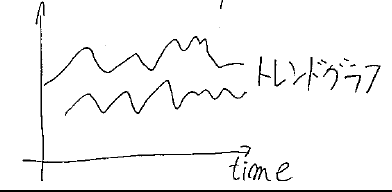 トレンドグラフ
time